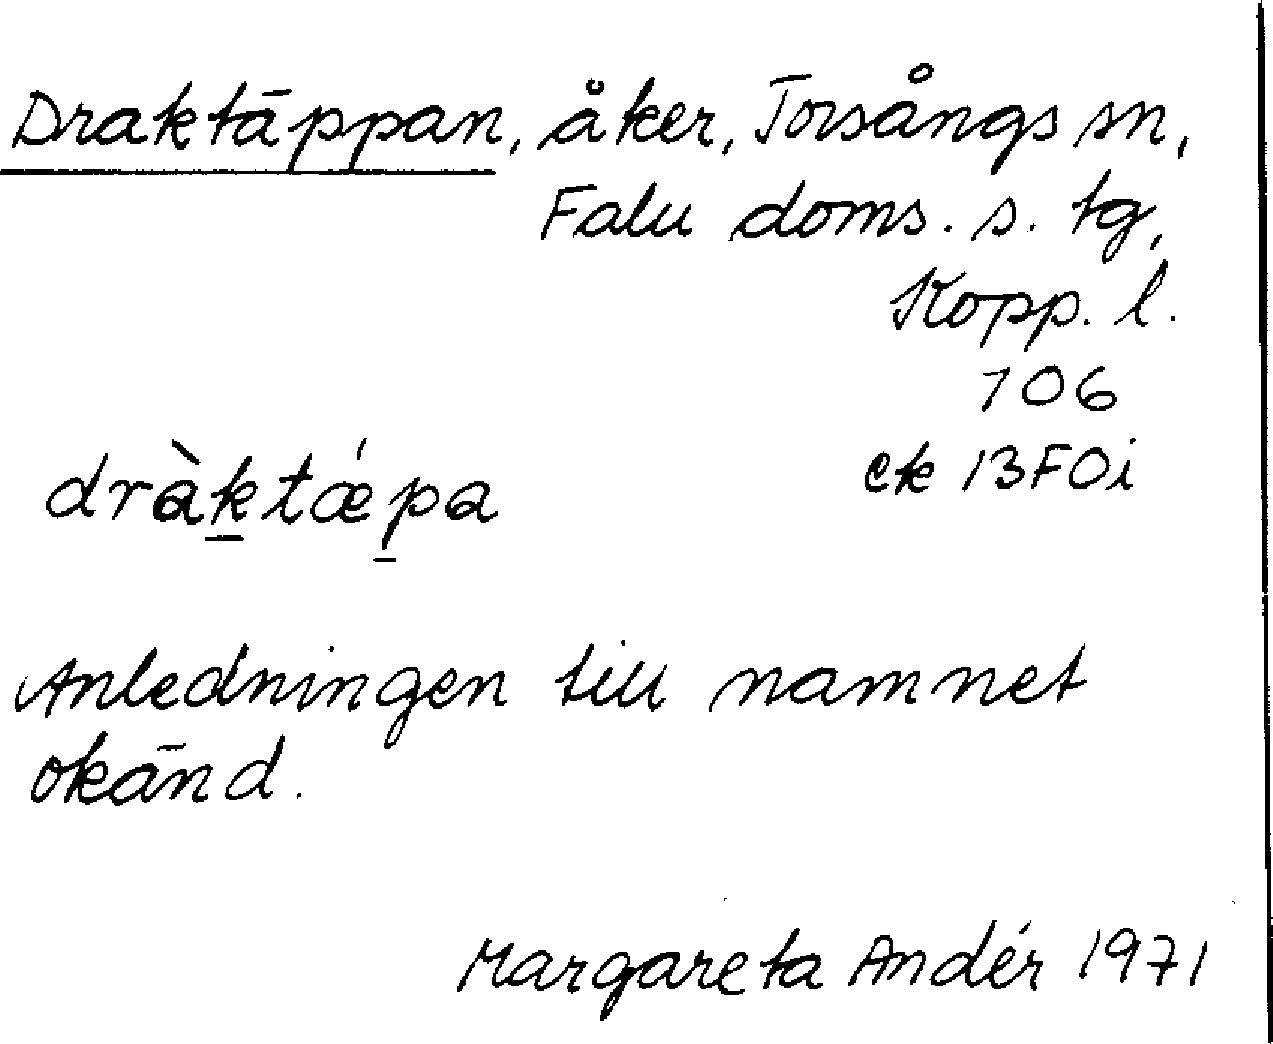 Draktäppan, åker, Torsångs sn,
Falu doms. s. tg,
Kopp. l.
106
dràk̲tǽp̲a
ek 13F0i
Anledningen till namnet
okänd.
Margareta Andér 1971